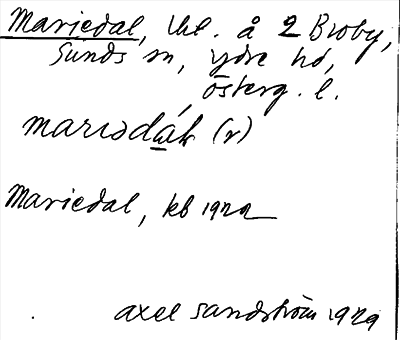 Mariedal, lht. å 2 Broby,
Sunds sn, Ydre hd,
Österg. l.
Mariedal, kb 1929
Axel Sandström 1929